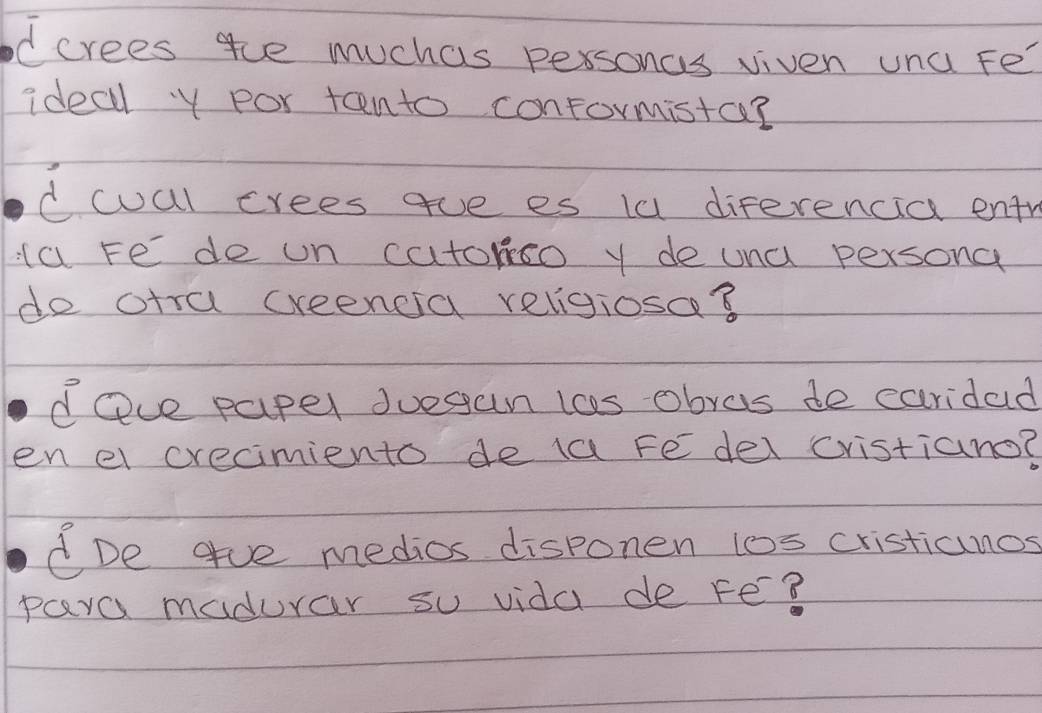 •¿crees que muchas personas viven una Fé
ideal y por tanto conformista?
•¿cual crees que es la diferencia entr
la Fé de un catolico y de una persona
de otra creencia religiosa?
•¿Que papel Juegan las obras de caridad
en el crecimiento de la Fé del cristiano?
•¿De que medios disponen los cristianos
para madurar su vida de Fé?